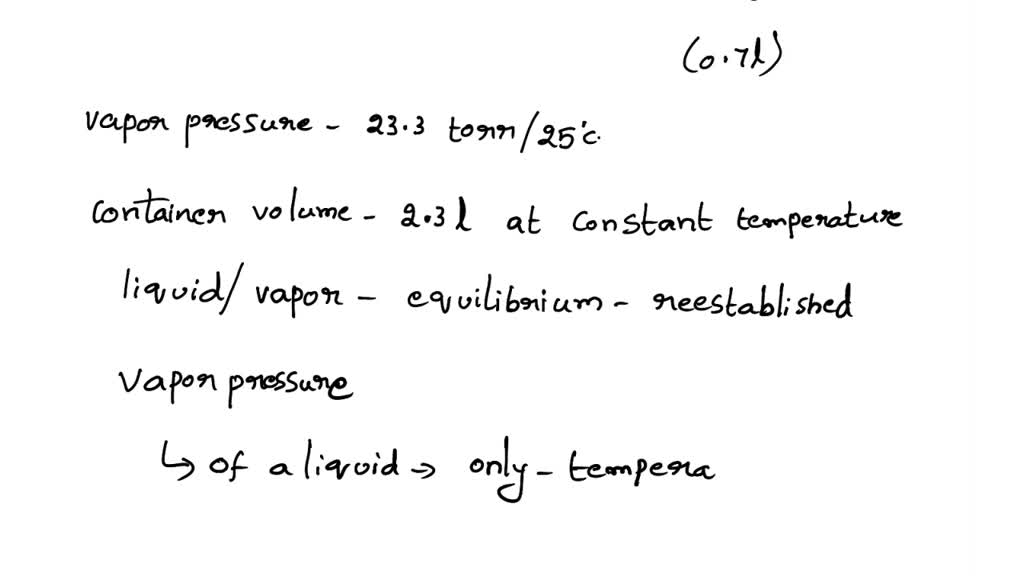 (0.7l)
vapor pressure - 23.3 torr/25°c
container volume - 2.3 l at constant temperature
liquid/vapor - equilibrium - reestablished
vapor pressure
↳ of a liquid → only - tempera